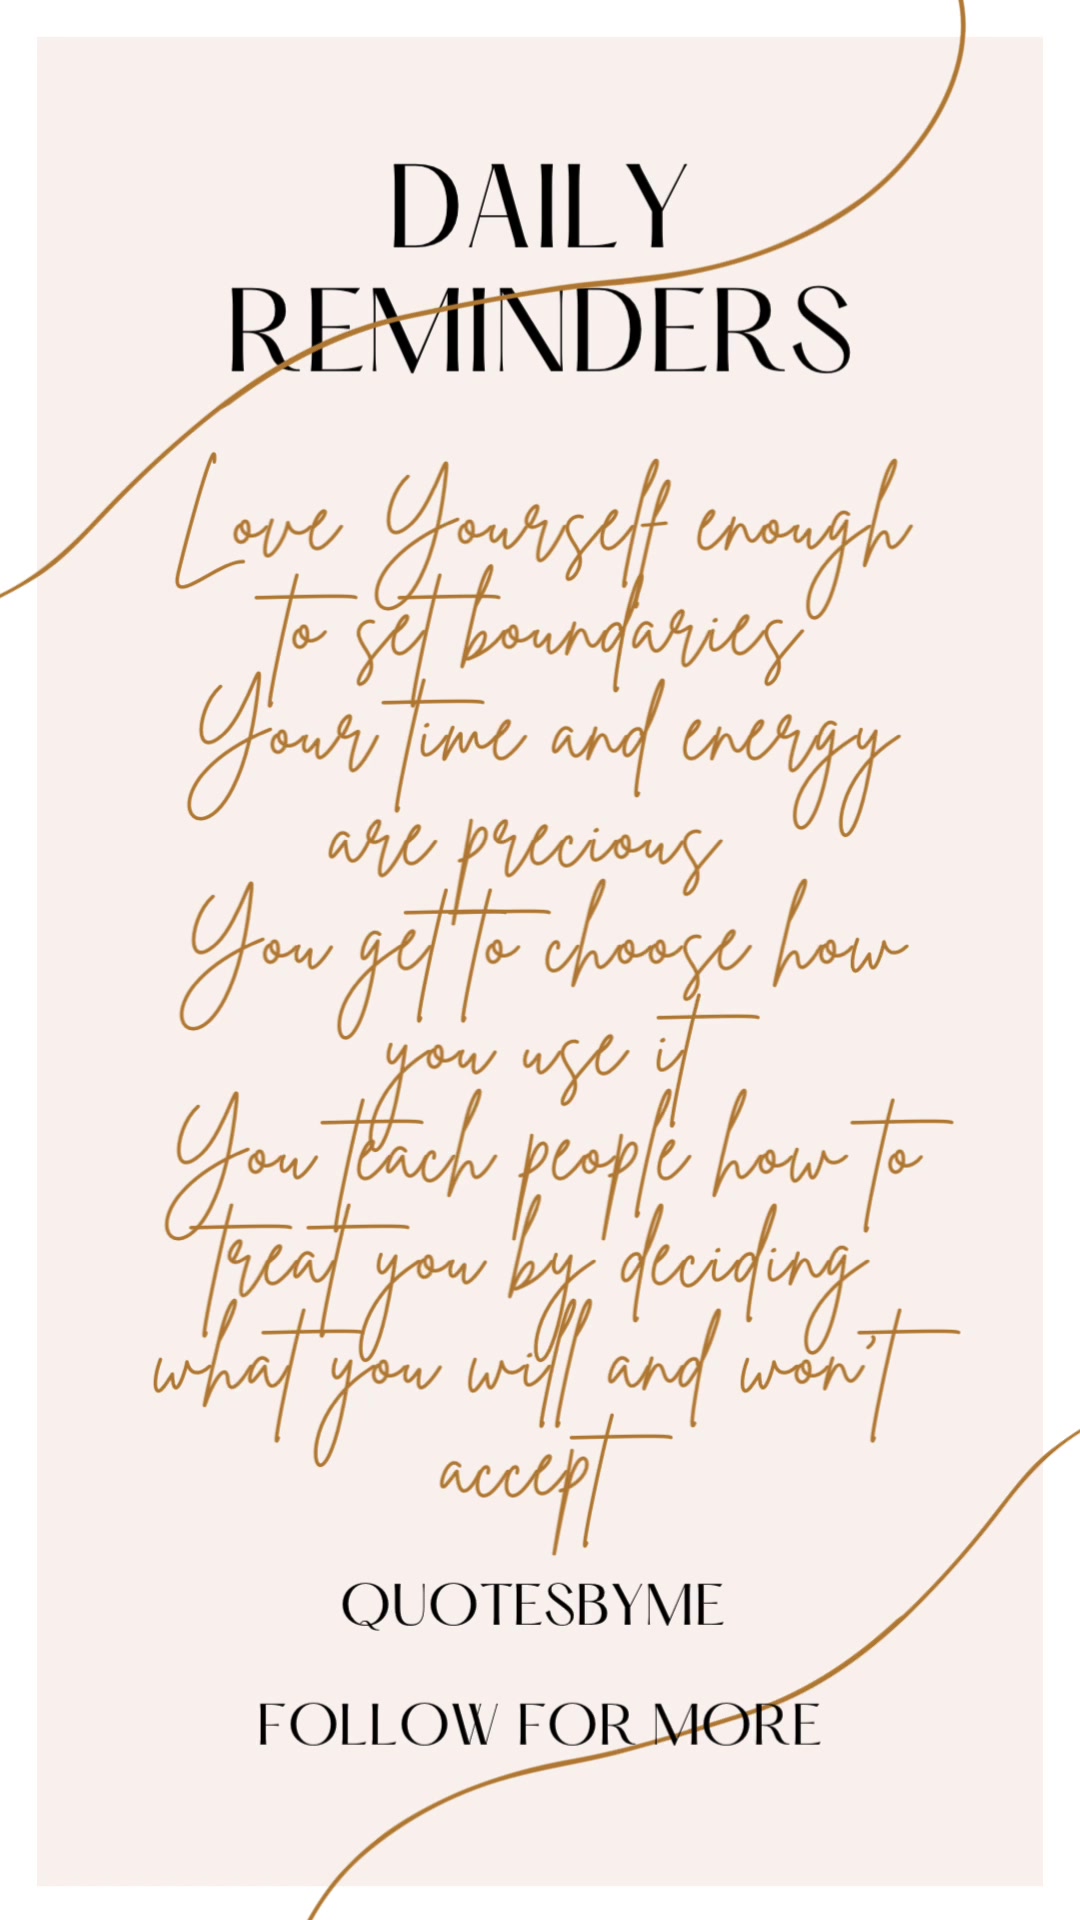 DAILY
REMINDERS
Love Yourself enough
to set boundaries
Your time and energy
are precious
You get to choose how
you use it
You teach people how to
treat you by deciding
what you will and won't
accept
QUOTESBYME
FOLLOW FOR MORE